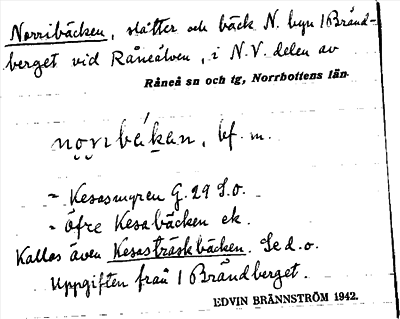 Norribäcken, slåtter och bäck N. byn 1 Bränd-
berget vid Råneälven, i N.V. delen av
Råneå sn och tg, Norrbottens län.
bf. m.
= Kesasmyren G. 29 S.o.
= Öfre Kesabäcken ek.
Kallas även Kesasträskbäcken. Se d.o.
Uppgiften från 1 Brändberget.
EDVIN BRÄNNSTRÖM 1942.